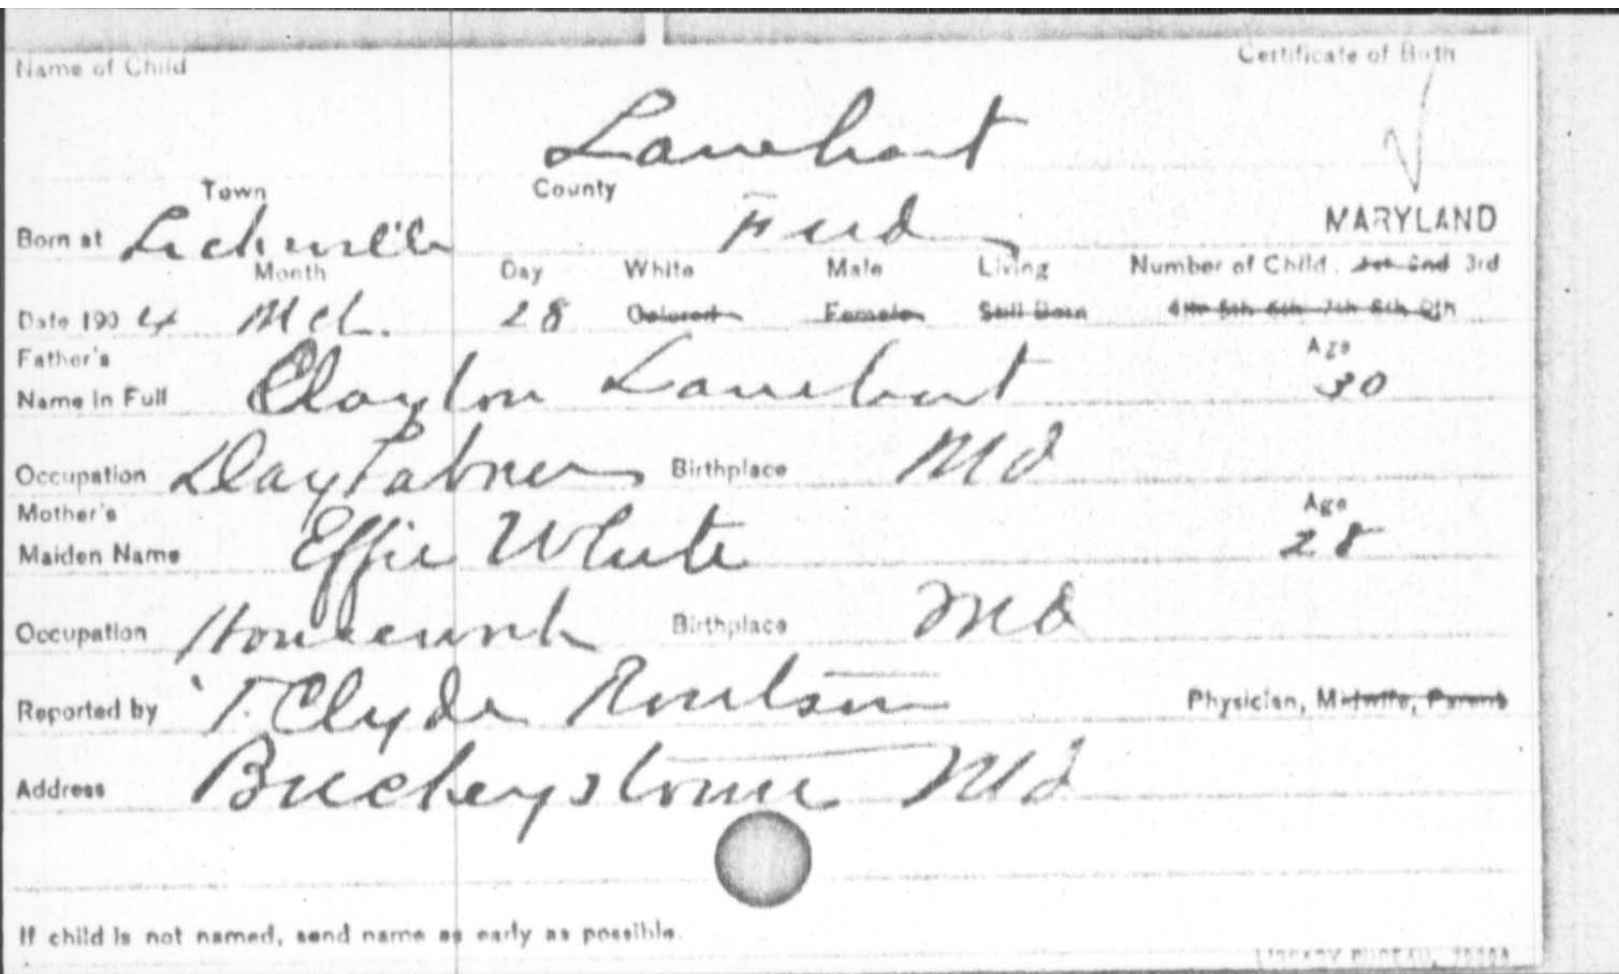 Name of Child
Certificate of Birth
Lamebart
Town County
Born at Fred MARYLAND
Month Day White Male Living Number of Child: 1st 2nd 3rd
Date 190 4 Mch. 28 Colored Female Still Born 4th 5th 6th 7th 8th 9th
Father's Age
Name in Full Clayton Lamebart 30
Occupation Day Labner Birthplace Md
Mother's Age
Maiden Name Effie White 28
Occupation Housework Birthplace Md
Reported by T. Clyde Routson Physician, Midwife, Parent
Address Buckeystown Md
If child is not named, send name as early as possible.
LIBRARY BUREAU